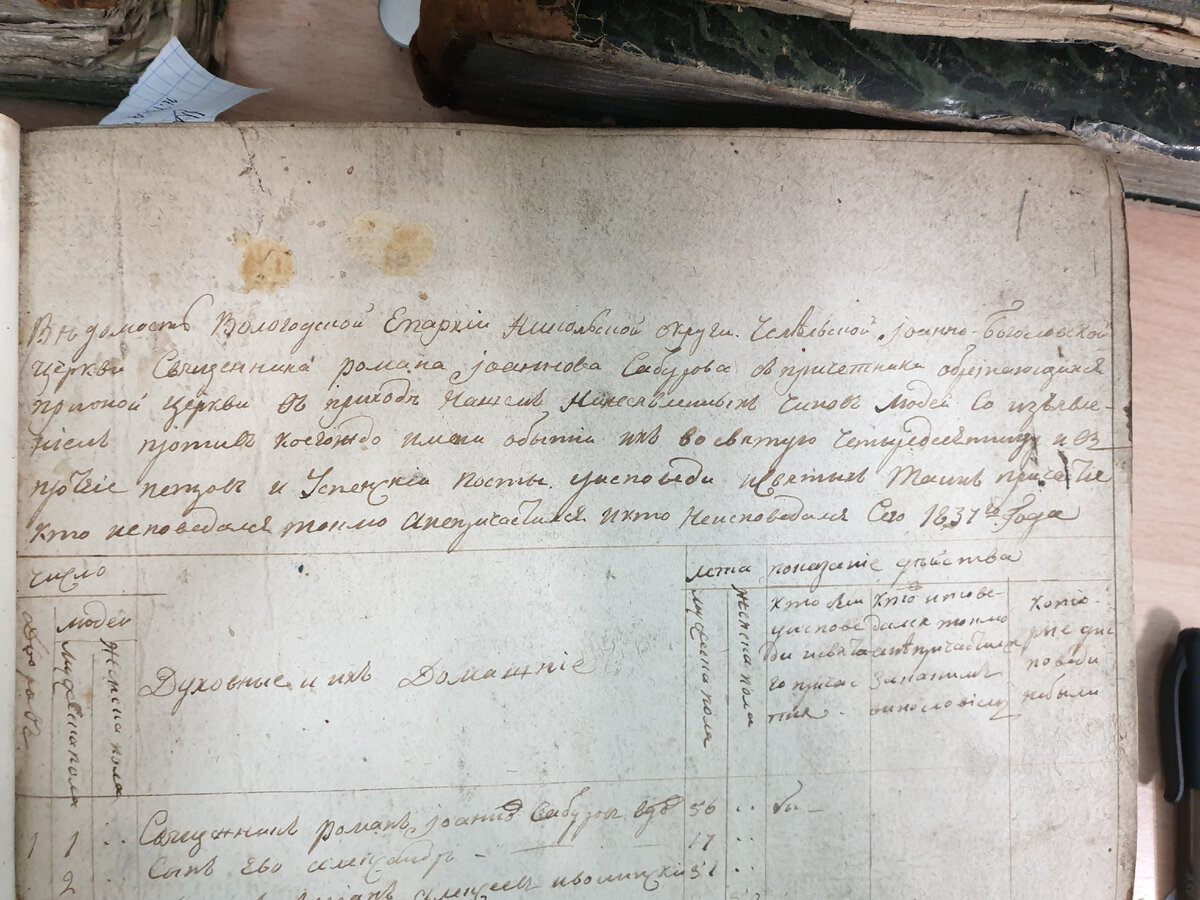 Вѣдомость Вологодской Епархіи Никольской округи Іоанно-Богословской
церкви Священника Романа Іоаннова Сабурова съ причетники обретающихся
прионой церкви въ приходѣ чиновъ людей Со изъявле-
ніемъ противъ коегождо имени обытіи ихъ во святую Четыредесятницу и въ
протчіе петровъ и Успенскіи посты уисповеди исвятыхъ Таинъ причастіе
кто исповедался токмо анепричастился икто Неисповедался Сего 1837го Года
число
лета
показаніе дѣйства
Дворовъ.
людей
мужеска пола
женска пола
Духовные и ихъ Домашніе
мужеска пола
женска пола
кто были
уиспове
ди исвята
го причас
тия
кто испове-
дался токмо
анепричастился
Закакимъ
винословіемъ
кото
рые уис
поведи
небыли
1 1 .. Священникъ Романъ Іоанновъ Сабуровъ вдовъ 56 .. бы-
2 .. Сынъ Ево Александръ - 17 ..
Алексеевъ 51